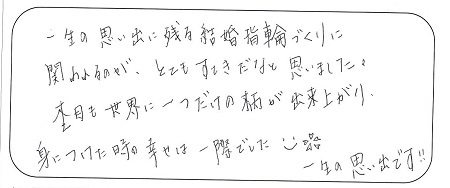 一生の思い出に残る結婚指輪づくりに
関われるのが、とてもすてきだなと思いました。
杢目も世界に一つだけの柄が出来上がり、
身につけた時の幸せは一際でした
一生の思い出です!!